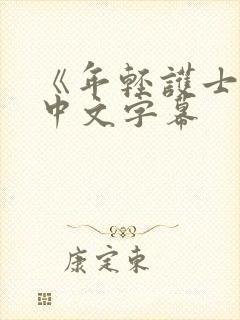 《年轻護士
中文字幕
康定東